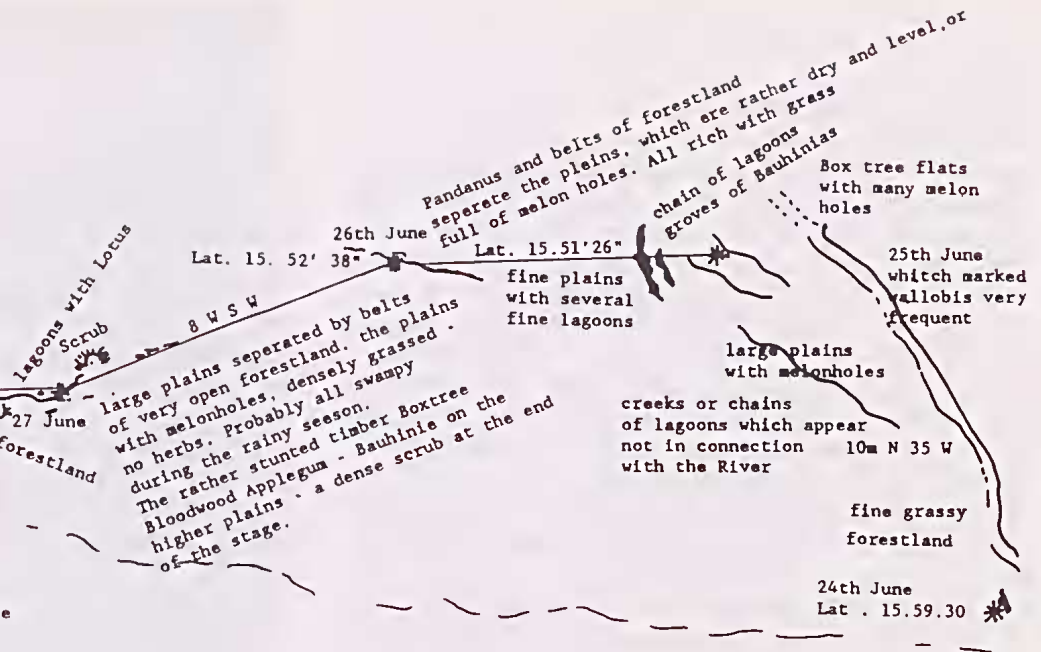 Pandanus and belts of forestland
seperete the pleins, which ere rather dry and level, or
full of melon holes. All rich with grass
chain of lagoons
groves of Bauhinias
Box tree flats
with many melon
holes
26th June
Lat. 15. 52' 38"
Lat. 15.51'26"
fine plains
with several
fine lagoons
25th June
whitch marked
wallobis very
frequent
lagoons with Lotus
Scrub
8 W S W
27 June
forestland
large plains seperated by belts
of very open forestland. the plains
with melonholes, densely grassed -
no herbs. Probably all swampy
during the rainy season.
The rather stunted timber Boxtree
Bloodwood Applegum - Bauhinie on the
higher plains - a dense scrub at the end
of the stage.
large plains
with melonholes
creeks or chains
of lagoons which appear
not in connection
with the River
10m N 35 W
fine grassy
forestland
24th June
Lat . 15.59.30